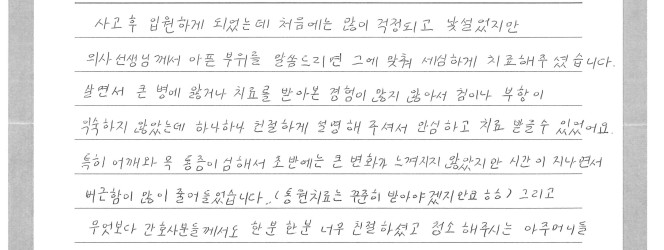 사고 후 입원하게 되었는데 처음에는 많이 걱정되고 낯설었지만
의사선생님께서 아픈 부위를 말씀드리면 그에 맞춰 세심하게 치료해주셨습니다.
살면서 큰 병에 앓거나 치료를 받아본 경험이 많지 않아서 침이나 부항이
익숙하지 않았는데 하나하나 친절하게 설명해 주셔서 안심하고 치료 받을 수 있었어요.
특히 어깨와 목 통증이 심해서 초반에는 큰 변화가 느껴지지 않았지만 시간이 지나면서
뻐근함이 많이 줄어들었습니다..(통원치료는 꾸준히 받아야겠지만요ㅎㅎ) 그리고
무엇보다 간호사분들께서도 한분 한분 너무 친절하셨고 청소해주시는 아주머니들